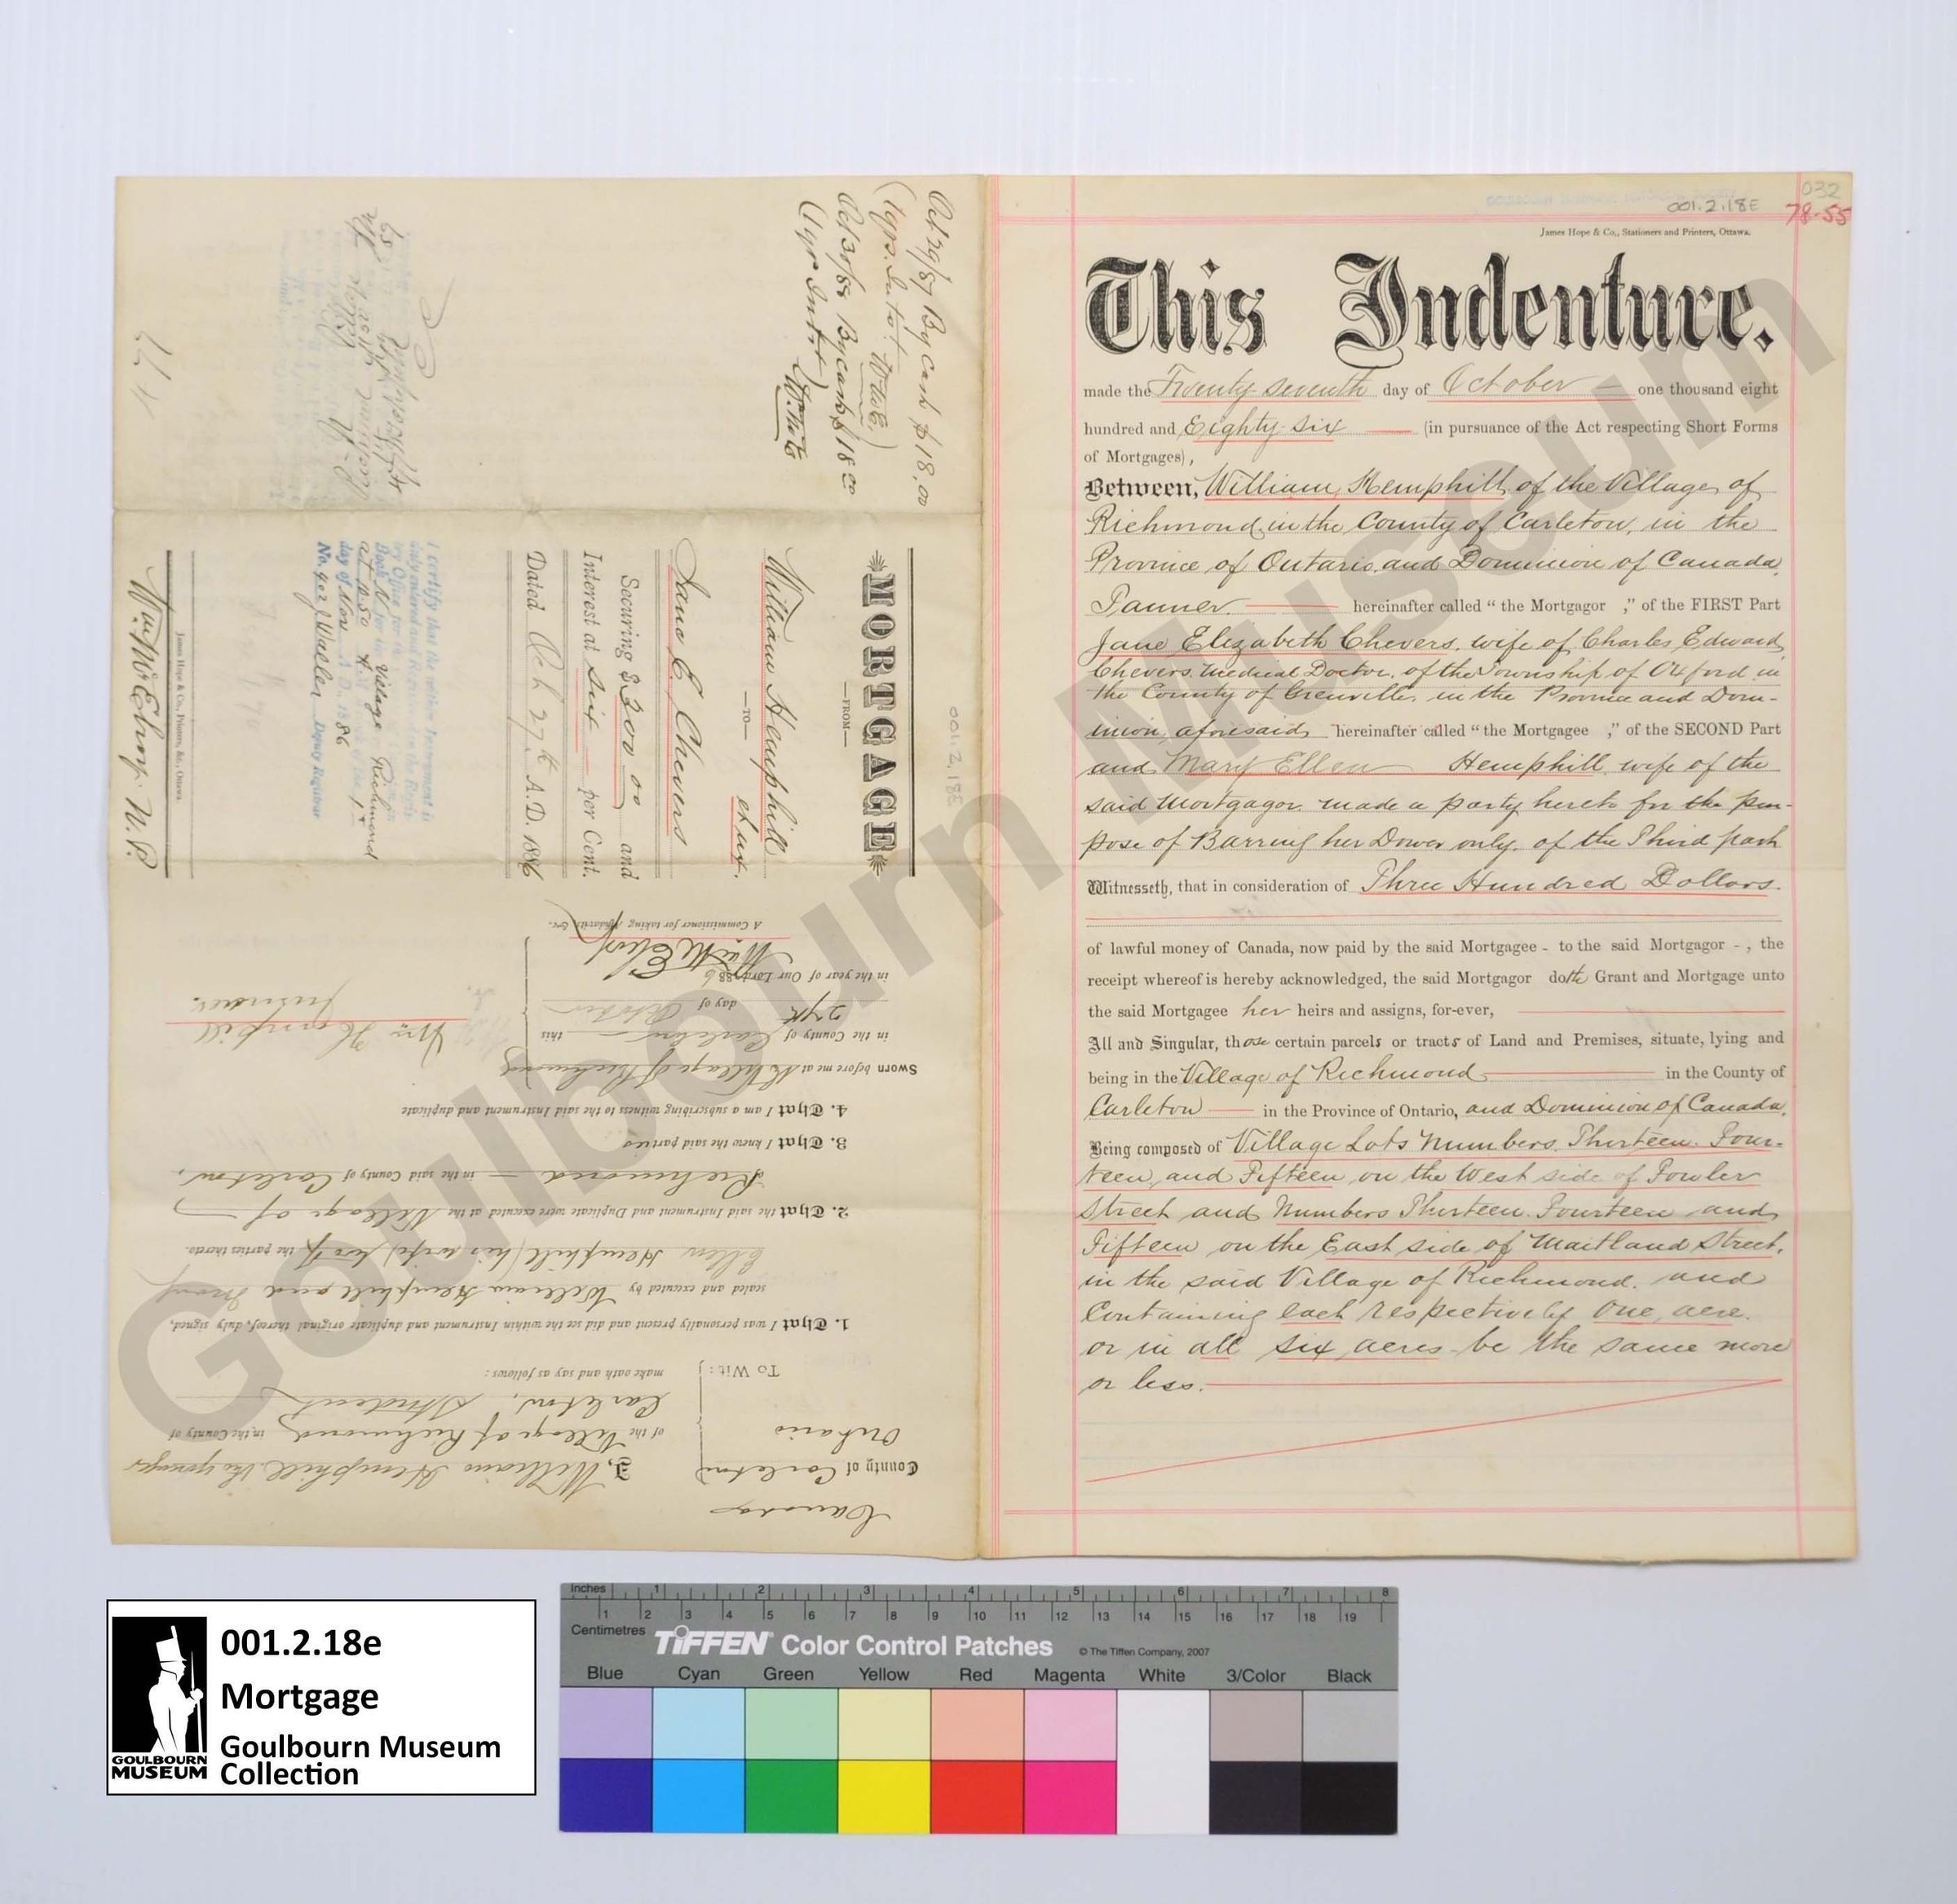 032
001.2.18E
78-55
James Hope & Co., Stationers and Printers, Ottawa.
This Indenture.
made the Twenty seventh day of October one thousand eight
hundred and Eighty six (in pursuance of the Act respecting Short Forms
of Mortgages),
Between, William Hemphill of the Village of
Richmond in the County of Carleton, in the
Province of Ontario and Dominion of Canada,
Tanner. hereinafter called "the Mortgagor ," of the FIRST Part
Jane Elizabeth Chevers, wife of Charles Edward
Chevers. Medical Doctor. of the Township of Oxford in
the County of Grenville, in the Province and Dom-
inion aforesaid, hereinafter called "the Mortgagee ," of the SECOND Part
and Mary Ellen Hemphill wife of the
said Mortgagor. made a party hereto for the pur-
pose of Barring her Dower only. of the Third part
Witnesseth, that in consideration of Three Hundred Dollars.
of lawful money of Canada, now paid by the said Mortgagee - to the said Mortgagor - , the
receipt whereof is hereby acknowledged, the said Mortgagor doth Grant and Mortgage unto
the said Mortgagee her heirs and assigns, for-ever,
All and Singular, those certain parcels or tracts of Land and Premises, situate, lying and
being in the Village of Richmond in the County of
Carleton in the Province of Ontario, and Dominion of Canada.
Being composed of Village Lots Numbers. Thirteen. Four-
teen, and Fifteen on the West side of Fowler
Street and Numbers Thirteen Fourteen and
Fifteen on the East side of Maitland Street.
in the said Village of Richmond. and
Containing each respectively One, acre.
or in all six acres be the same more
or less.
Oct 29/87 By Cash $18.00
(1 yrs. Int.
Oct 30/88 By cash $18 00
(1 yr Int
001.2.18E
MORTGAGE
—FROM—
William Hemphill
et ux.
—TO—
Jane E. Chevers
Securing $300 00 and
Interest at six per Cent.
Dated Oct 27th A.D. 1886
I certify that the within Instrument is
duly entered and
Village Richmond
at 10.50
day of Nov A.D. 1886
No. Waller Deputy Registrar
James Hope & Co., Printers, &c., Ottawa.
Wm McElroy. N.P.
Canada
County of Carleton
Ontario
To Wit:
I, William Hemphill the younger
of the Village of Richmond in the County of
Carleton, Student
make oath and say as follows:
1. That I was personally present and did see the within Instrument and duplicate original thereof, duly signed,
sealed and executed by William Hemphill and Mary
Ellen Hemphill (his wife) two of the parties thereto.
2. That the said Instrument and Duplicate were executed at the Village of
Richmond in the said County of Carleton,
3. That I know the said parties
4. That I am a subscribing witness to the said Instrument and duplicate
Sworn before me at Village of Richmond
in the County of Carleton this
27th day of October
in the year of Our Lord 1886
Wm McElroy
A Commissioner for taking Affidavits, &c.
Wm Hemphill
Junior.
001.2.18e
Mortgage
Goulbourn Museum
Collection
GOULBOURN
MUSEUM
Inches 1 2 3 4 5 6 7 8
1 2 3 4 5 6 7 8 9 10 11 12 13 14 15 16 17 18 19
Centimetres
TIFFEN Color Control Patches © The Tiffen Company, 2007
Blue Cyan Green Yellow Red Magenta White 3/Color Black
Goulbourn Museum